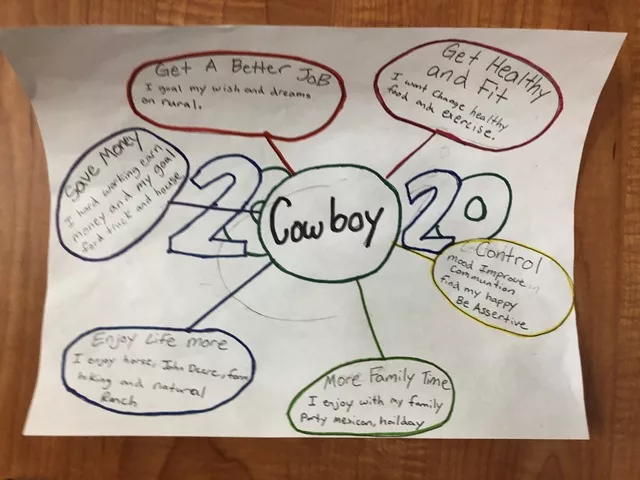 Get A Better JoB
I goal my wish and dreams
on rural.
Get Healthy
and Fit
I want change healthy
food and exercise.
Save Money
I hard working earn
money and my goal
ford truck and house
2020
Cowboy
Control
mood Improve
Communtion
find my happy
Be Assertive
Enjoy Life more
I enjoy horse, John Deere, farm
hiking and natural
Ranch
More Family Time
I enjoy with my family
Party mexican, hailday